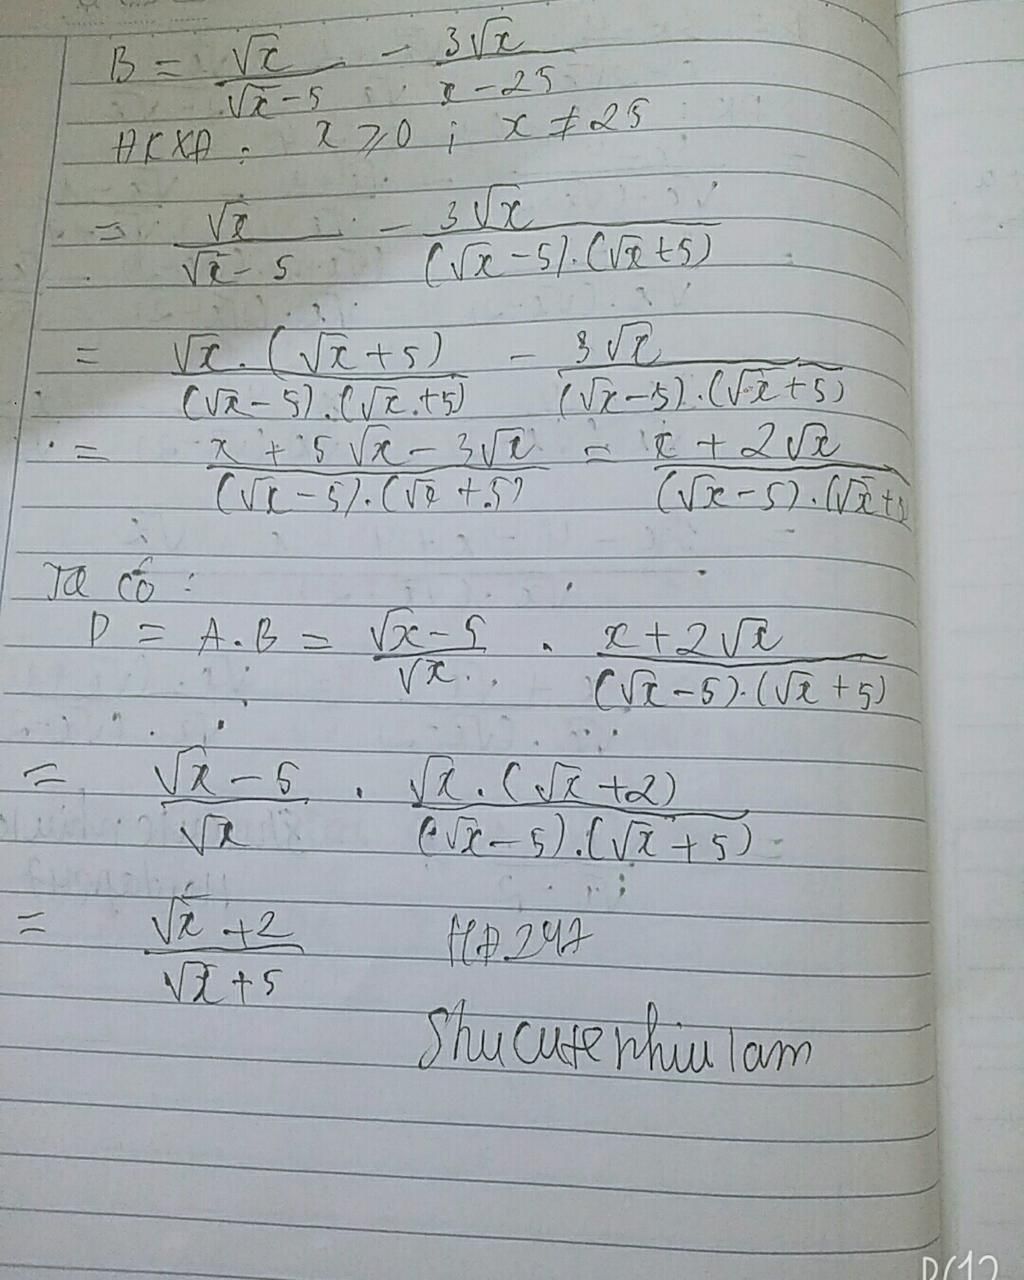 B = √x/(√x-5) - 3√x/(x-25)
ĐKXĐ: x ≥ 0; x ≠ 25
= √x/(√x-5) - 3√x/((√x-5).(√x+5))
= √x.(√x+5)/((√x-5).(√x+5)) - 3√x/((√x-5).(√x+5))
= (x+5√x-3√x)/((√x-5).(√x+5)) = (x+2√x)/((√x-5).(√x+5)
Ta có:
P = A.B = (√x-5)/√x . (x+2√x)/((√x-5).(√x+5))
= (√x-5)/√x . √x.(√x+2)/((√x-5).(√x+5))
= (√x+2)/(√x+5)
Shucutenhiulam